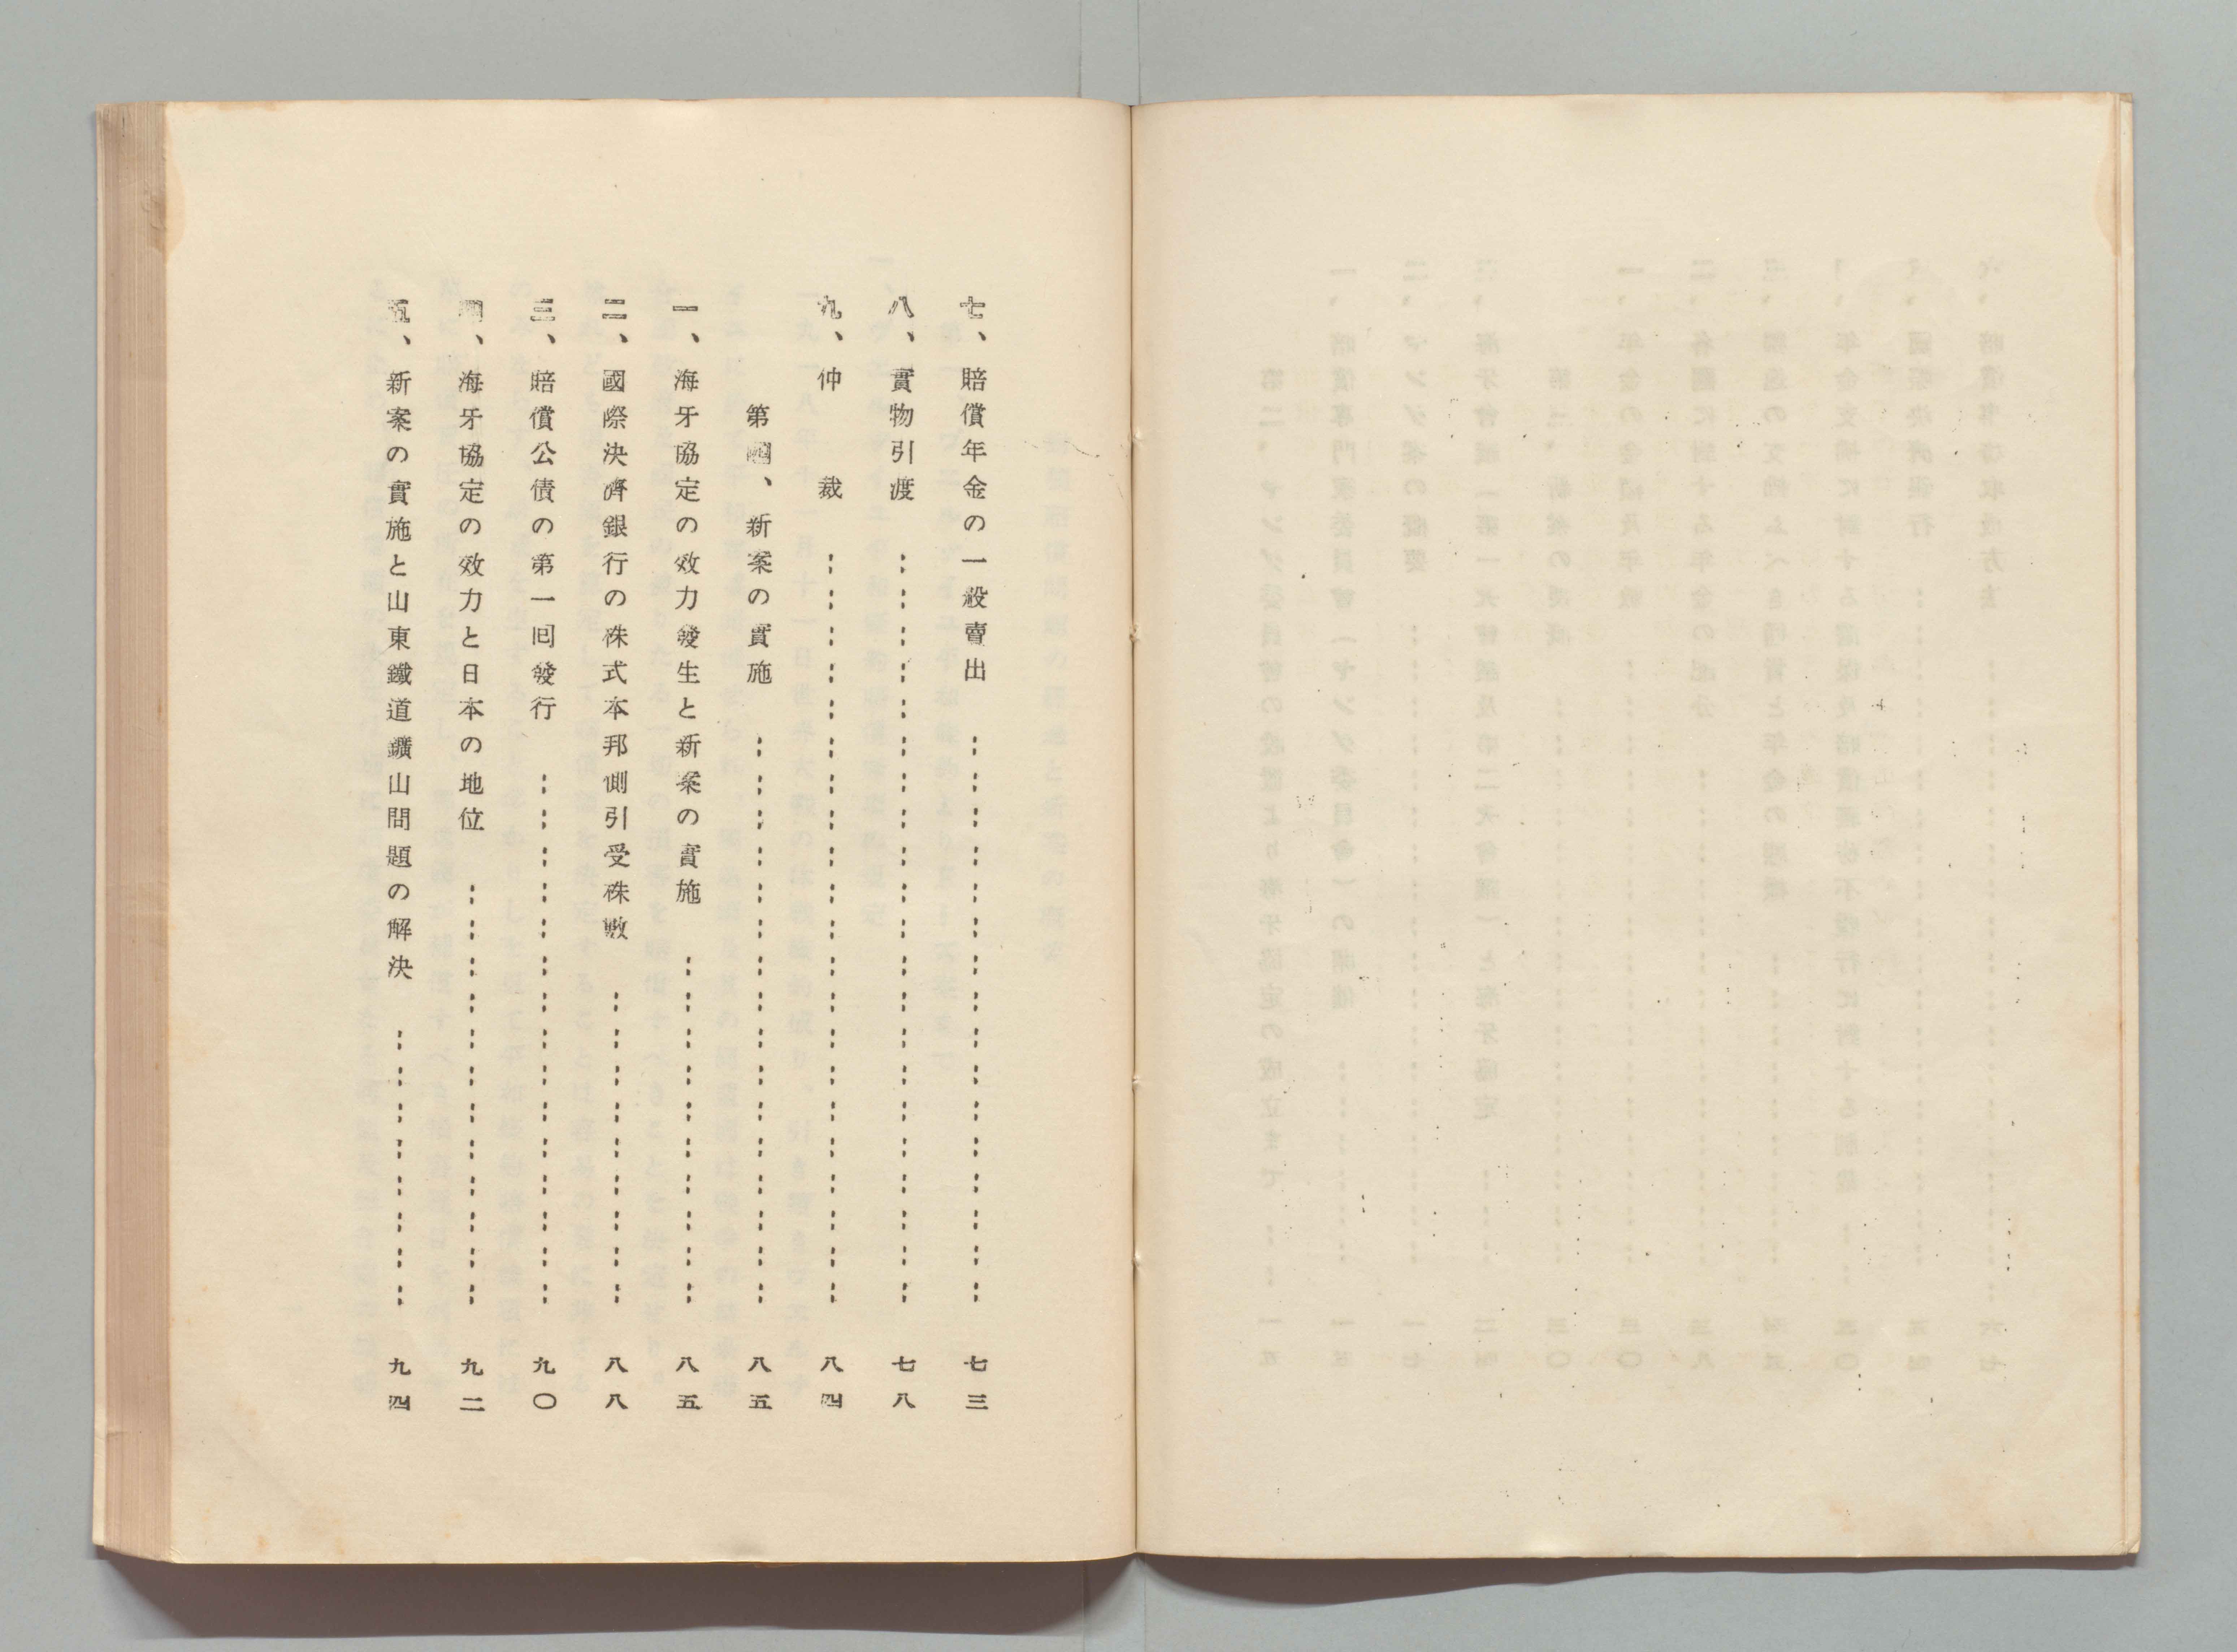 七、賠償年金の一般賣出 ………… 七三
八、實物引渡 ………… 七八
九、仲裁 ………… 八四
第四、新案の實施 ………… 八五
一、海牙協定の效力發生と新案の實施 ………… 八五
二、國際決濟銀行の株式本邦側引受株數 ………… 八八
三、賠償公債の第一回發行 ………… 九〇
四、海牙協定の效力と日本の地位 ………… 九二
五、新案の實施と山東鐵道鑛山問題の解決 ………… 九四